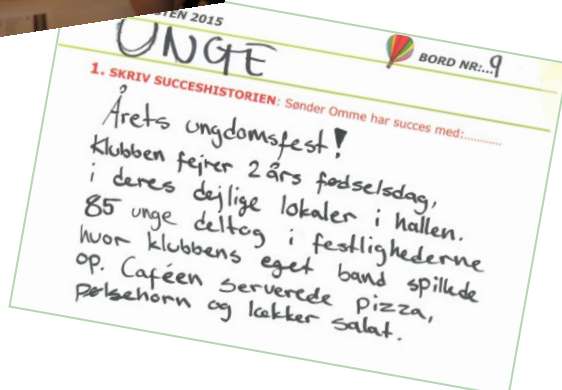 STEN 2015
UNGE
BORD NR:...9
1. SKRIV SUCCESHISTORIEN: Sønder Omme har succes med:............
Årets ungdomsfest!
Klubben fejrer 2 års fødselsdag,
i deres dejlige lokaler i hallen.
85 unge deltog i festlighederne
hvor klubbens eget band spillede
op. Caféen serverede pizza,
pølsehorn og lækker salat.